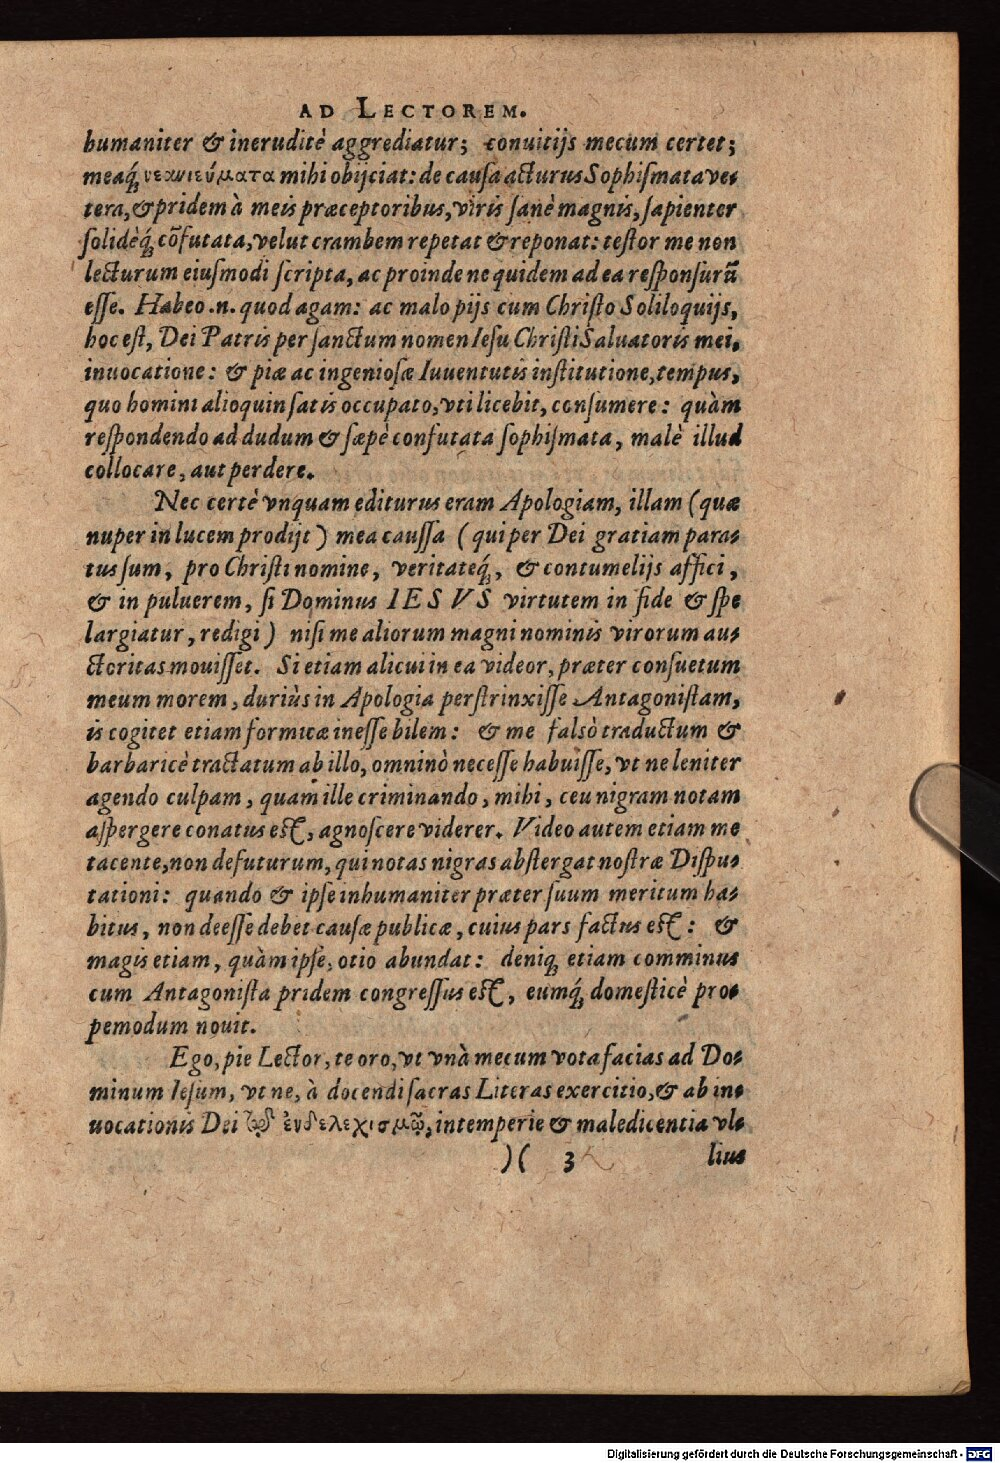 AD LECTOREM.
humaniter & ineruditè aggrediatur; conuitijs mecum certet;
meaq́; νεανιεύματα mihi obijciat: de causa acturus Sophismata ve-
tera, & pridem à meis præceptoribus, viris sanè magnis, sapienter
solidèq́; cõfutata, velut crambem repetat & reponat: testor me non
lecturum eiusmodi scripta, ac proinde ne quidem ad ea responsurũ
esse. Habeo .n. quod agam: ac malo pijs cum Christo Soliloquijs,
hoc est, Dei Patris per sanctum nomen Iesu Christi Saluatoris mei,
inuocatione: & piæ ac ingeniosæ Iuuentutis institutione, tempus,
quo homini alioquin satis occupato, vti licebit, consumere: quàm
respondendo ad dudum & sæpè confutata sophismata, malè illud
collocare, aut perdere.
Nec certè vnquam editurus eram Apologiam, illam (quæ
nuper in lucem prodijt) mea caussa (qui per Dei gratiam para-
tus sum, pro Christi nomine, veritateq́;, & contumelijs affici,
& in puluerem, si Dominus IESVS virtutem in fide & spe
largiatur, redigi) nisi me aliorum magni nominis virorum au-
ctoritas mouisset. Si etiam alicui in ea videor, præter consuetum
meum morem, duriùs in Apologia perstrinxisse Antagonistam,
is cogitet etiam formicæ inesse bilem: & me falsò traductum &
barbaricè tractatum ab illo, omninò necesse habuisse, vt ne leniter
agendo culpam, quam ille criminando, mihi, ceu nigram notam
aspergere conatus est, agnoscere viderer. Video autem etiam me
tacente, non defuturum, qui notas nigras abstergat nostræ Dispu-
tationi: quando & ipse inhumaniter præter suum meritum ha-
bitus, non deesse debet causæ publicæ, cuius pars factus est: &
magis etiam, quàm ipse, otio abundat: deniq; etiam comminus
cum Antagonista pridem congressus est, eumq́; domesticè pro-
pemodum nouit.
Ego, pie Lector, te oro, vt vnà mecum vota facias ad Do-
minum Iesum, vt ne, à docendi sacras Literas exercitio, & ab in-
uocationis Dei ἐνδελεχισμῷ, intemperie & maledicentia vl-
)( 3 lius
Digitalisierung gefördert durch die Deutsche Forschungsgemeinschaft - DFG